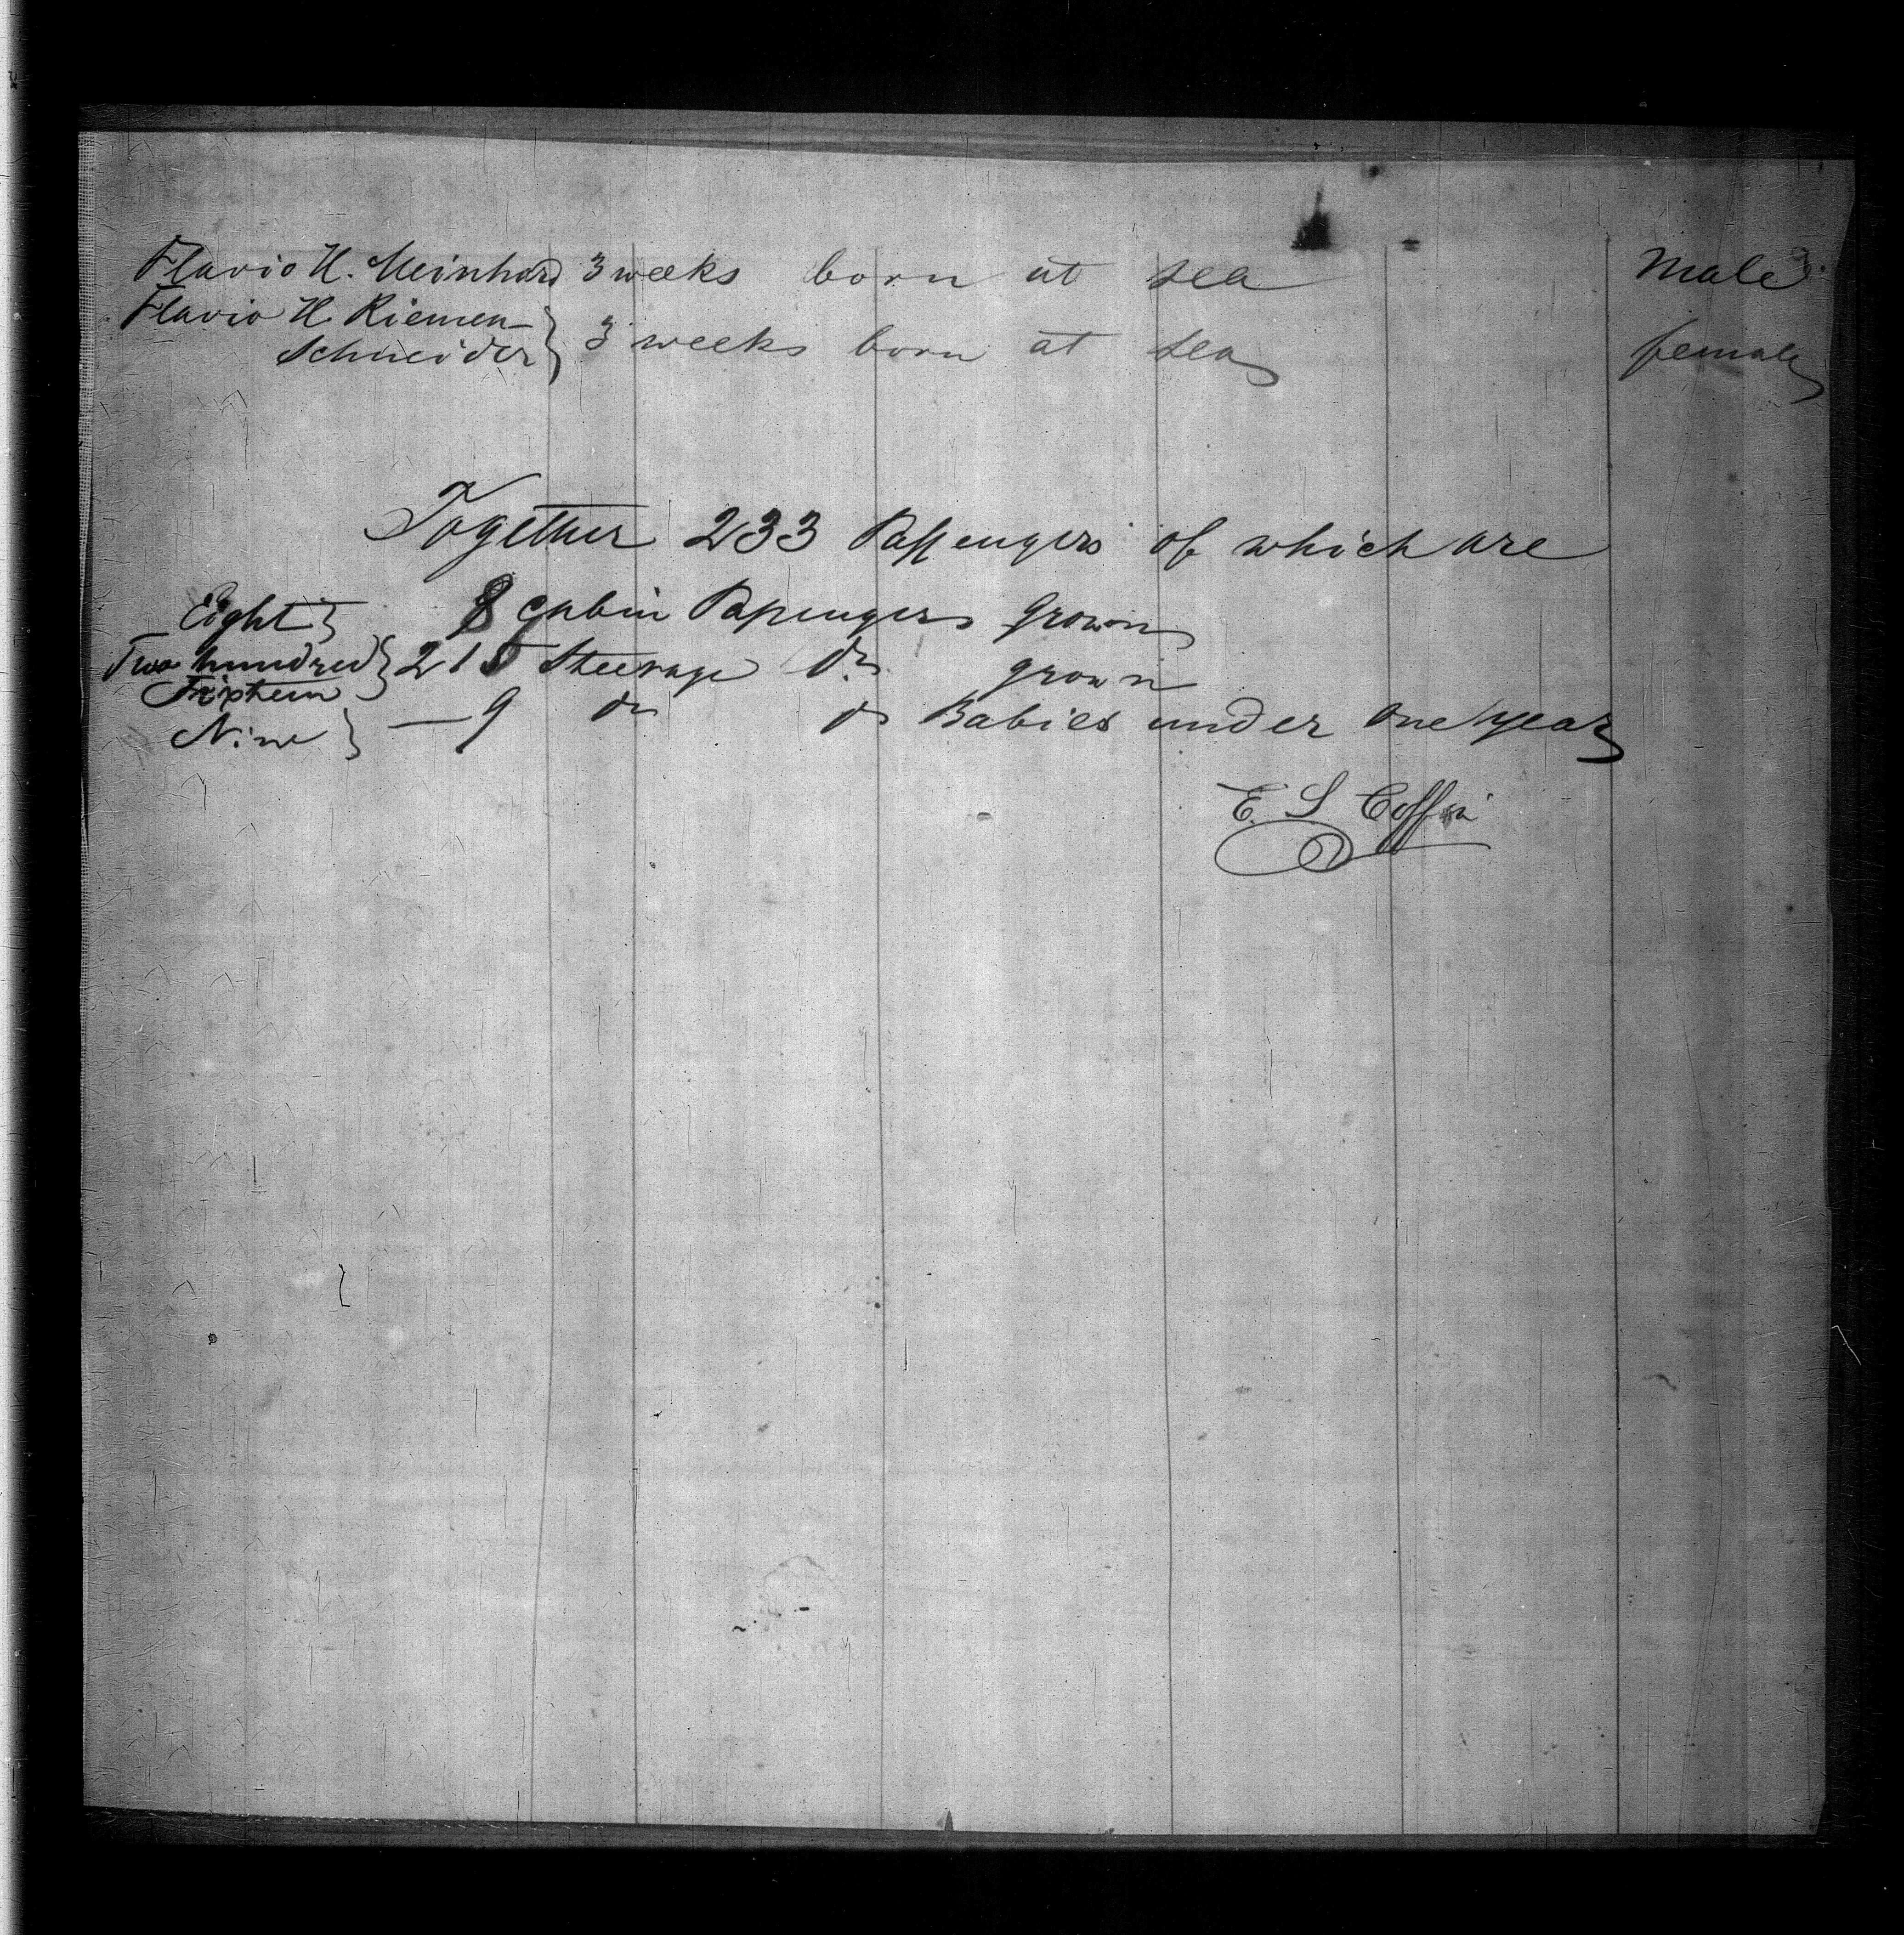 Flavio H. Meinhard 3 weeks born at sea Male
Flavio H Riemen-
Schneider } 3 weeks born at sea female
Together 233 Passengers of which are
Eight } 8 Cabin Passengers grown
Two hundred } 215 Steerage do grown
Nine } — 9 do do Babies under one year
E. S Coffin